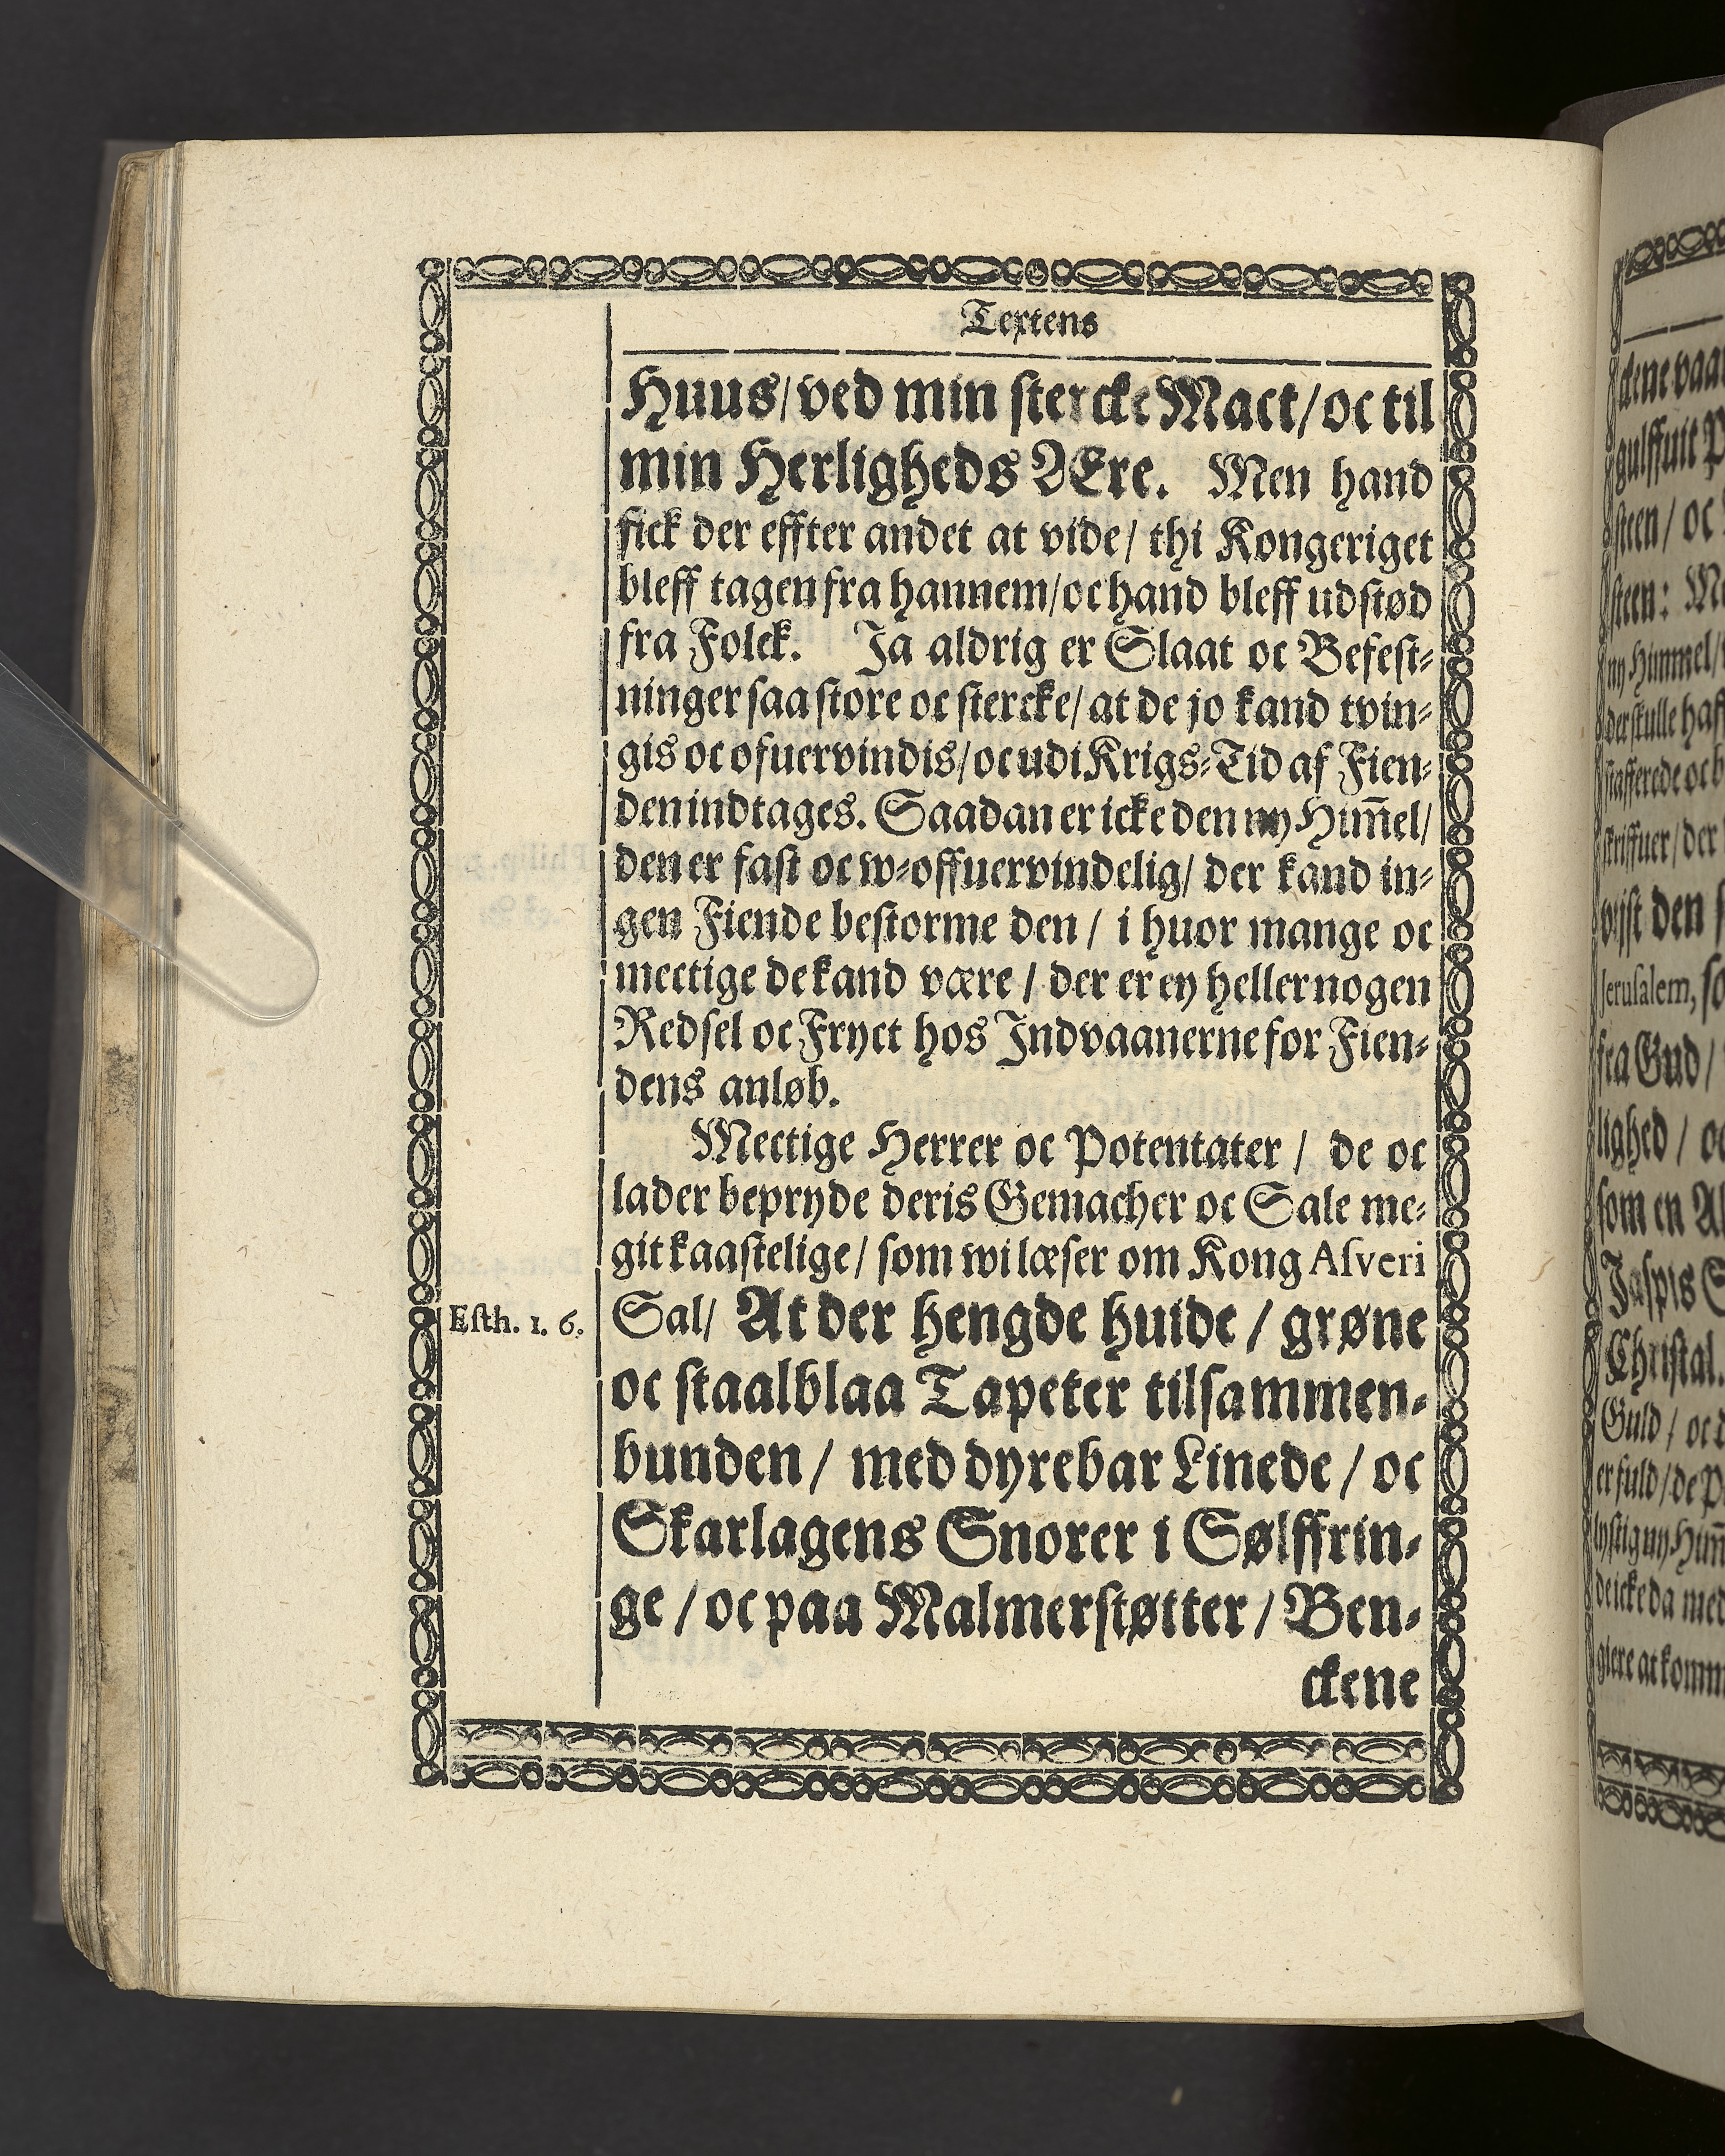 Textens
Huus/ ved min stercke Mact/ oc til
min Herligheds Ære. Men hand
fick der effter andet at vide/ thi Kongeriget
bleff tagen fra hannem/ oc hand bleff udstød
fra Folck. Ja aldrig er Slaat oc Befest-
ninger saa store oc stercke/ at de jo kand tvin-
gis oc ofuervindis/ oc udi Krigs-Tid af Fien-
den indtages. Saadan er icke den ny Him̄el/
den er fast oc w-offuervindelig/ der kand in-
gen Fiende bestorme den/ i huor mange oc
mectige de kand være/ der er ey heller nogen
Redsel oc Fryct hos Indvaanerne for Fien-
dens anløb.
Mectige Herrer oc Potentater/ de oc
lader bepryde deris Gemacher oc Sale me-
git kaastelige/ som wi læser om Kong Asveri
Esth. 1. 6.
Sal/ At der hengde huide/ grøne
oc staalblaa Tapeter tilsammen-
bunden/ med dyrebar Linede/ oc
Skarlagens Snorer i Sølffrin-
ge/ oc paa Malmerstøtter/ Ben-
ckene